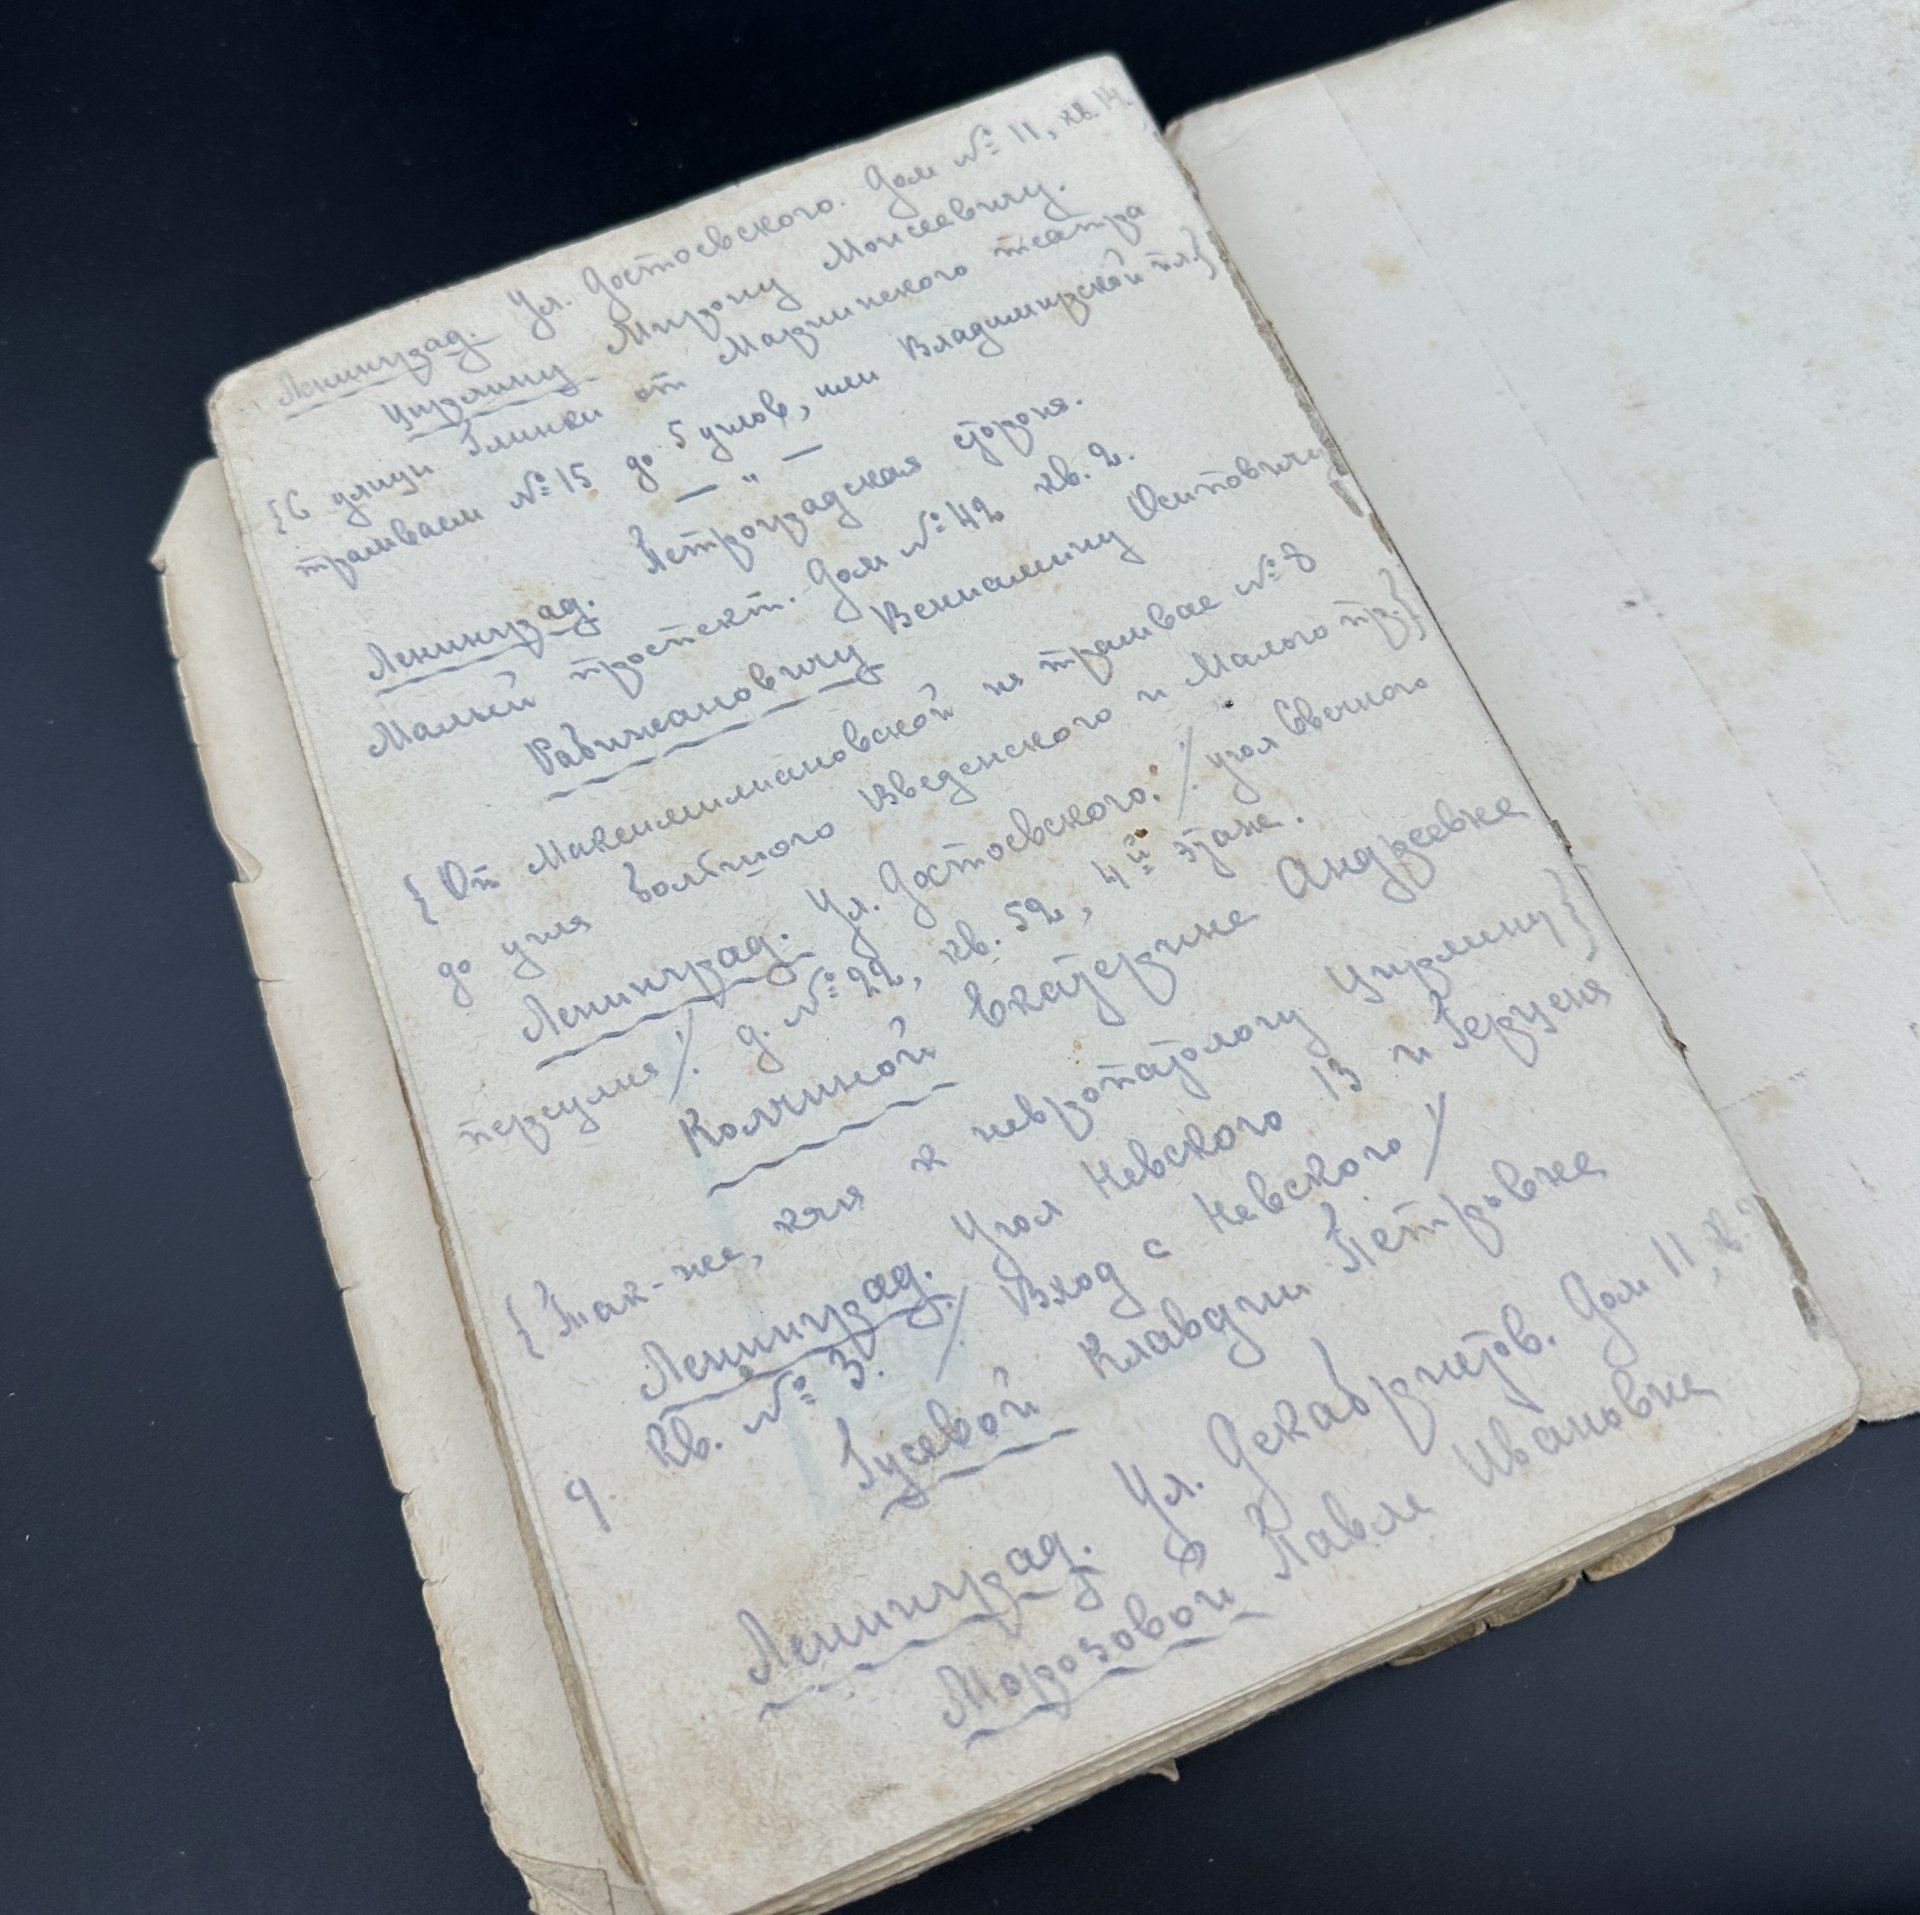 Ленинград. Ул. Достоевского. Дом № 11, кв. 14.
Цирлину Мирону Моисеевичу.
{С улицы Глинки от Мариинского театра
трамваем № 15 до 5 углов, или Владимирской пл.}
— " —
Ленинград. Петроградская сторона.
Малый проспект. Дом № 42 кв. 2.
Рабинановичу Вениамину Осиповичу
{От Максимилиановской на трамвае № 8
до угла Большого Введенского и Малого пр.}
Ленинград. Ул. Достоевского. /угол Свечного
переулка/. д. № 22, кв. 52, 4й этаж.
Колчиной Екатерине Андреевне
{Так-же, как к невропатологу Цирлину}
Ленинград. Угол Невского 13 и Герцена
д. кв. № 3. /Вход с Невского/
Гусевой Клавдии Петровне
Ленинград. Ул. Декабристов. Дом 11,
Морозовой Павле Ивановне